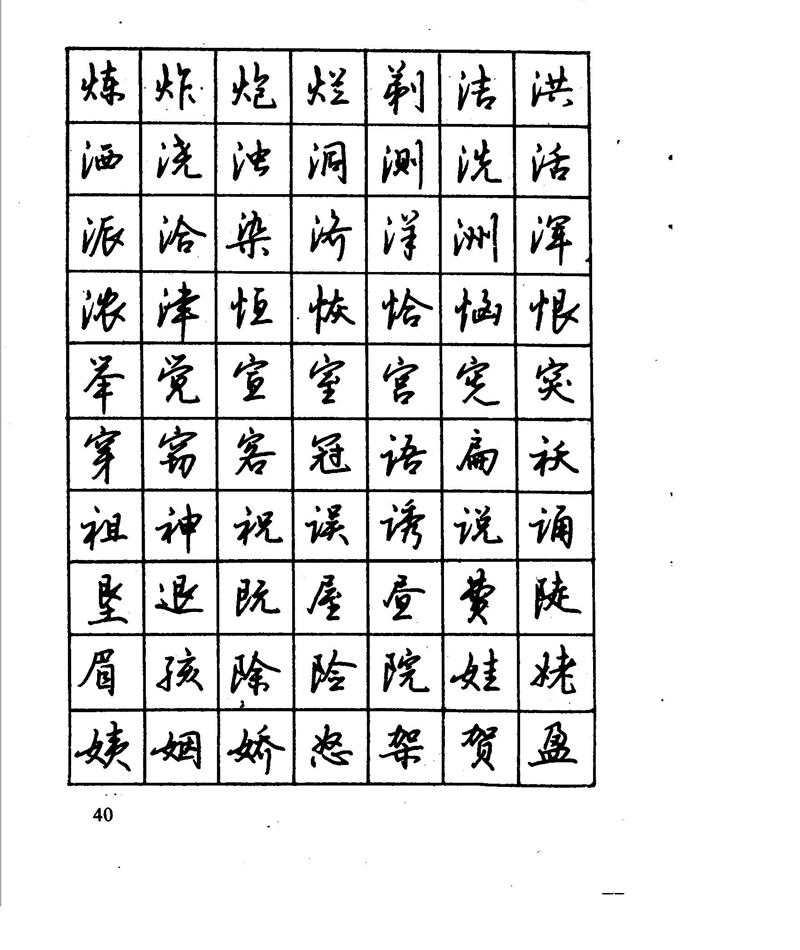 炼炸炮烂剃洁洪
洒浇浊洞测洗活
派洽染济洋洲浑
浓津恒恢恰恼恨
举觉宣室宫宪突
穿窃客冠语扁袄
祖神祝误诱说诵
垦退既屋昼费陡
眉孩除险院娃姥
姨姻娇怒架贺盈
40